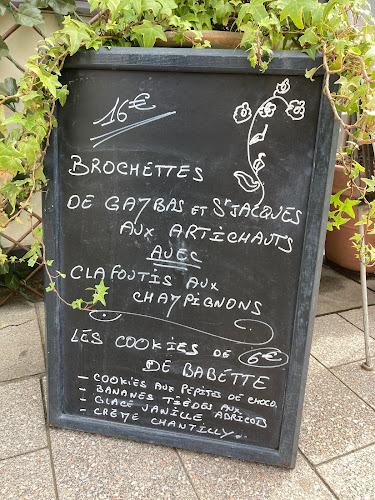 16€
BROCHETTES
DE GAMBAS ET St JACQUES
AUX ARTICHAUTS
AVEC
CLAFOUTIS AUX
CHAMPIGNONS
LES COOKIES DE 6€
DE BABETTE
- COOKIES AUX PÉPITES DE CHOCO.
- BANANES TIÈDES AUX
- GLACE VANILLE ABRICOTS
- CRÈME CHANTILLY.